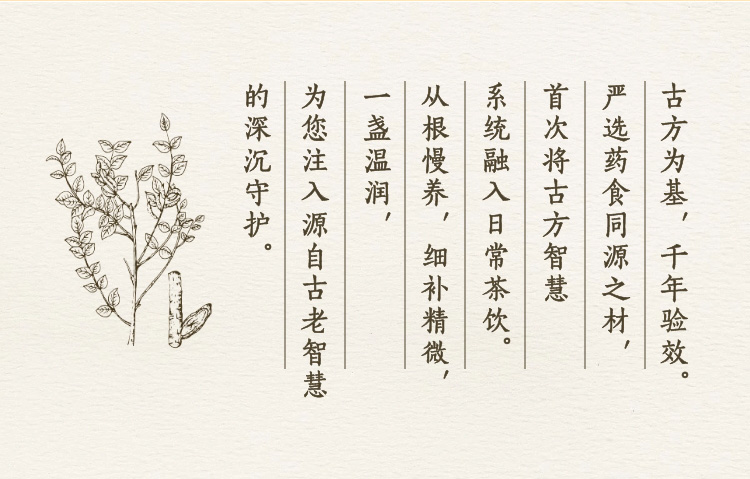 古方为基，千年验效。
严选药食同源之材，
首次将古方智慧
系统融入日常茶饮。
从根慢养，细补精微，
一盏温润，
为您注入源自古老智慧
的深沉守护。